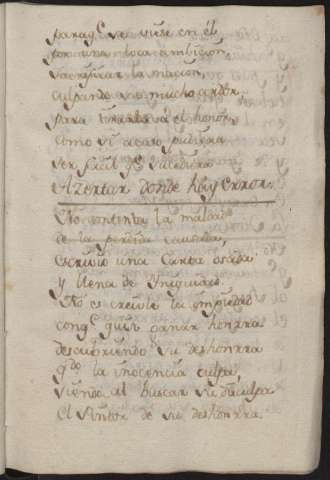 paraq.e se viese en él
por una loca ambicion,
sacrificar la nacion,
culpando su mucho ardor
para el honor,
como si acaso pudiera
ser facil q.e sucediera
Azertar donde hay error.
No contenta la maldad
de la perfida causada,
escrivio una Carta osada
y llena de Iniquidad.
No es creible la impiedad
conq.e quiso ganar honrra
descubriendo su deshonrra
q.do la inocencia culpa,
siendo al buscar su disculpa
el de su deshonrra